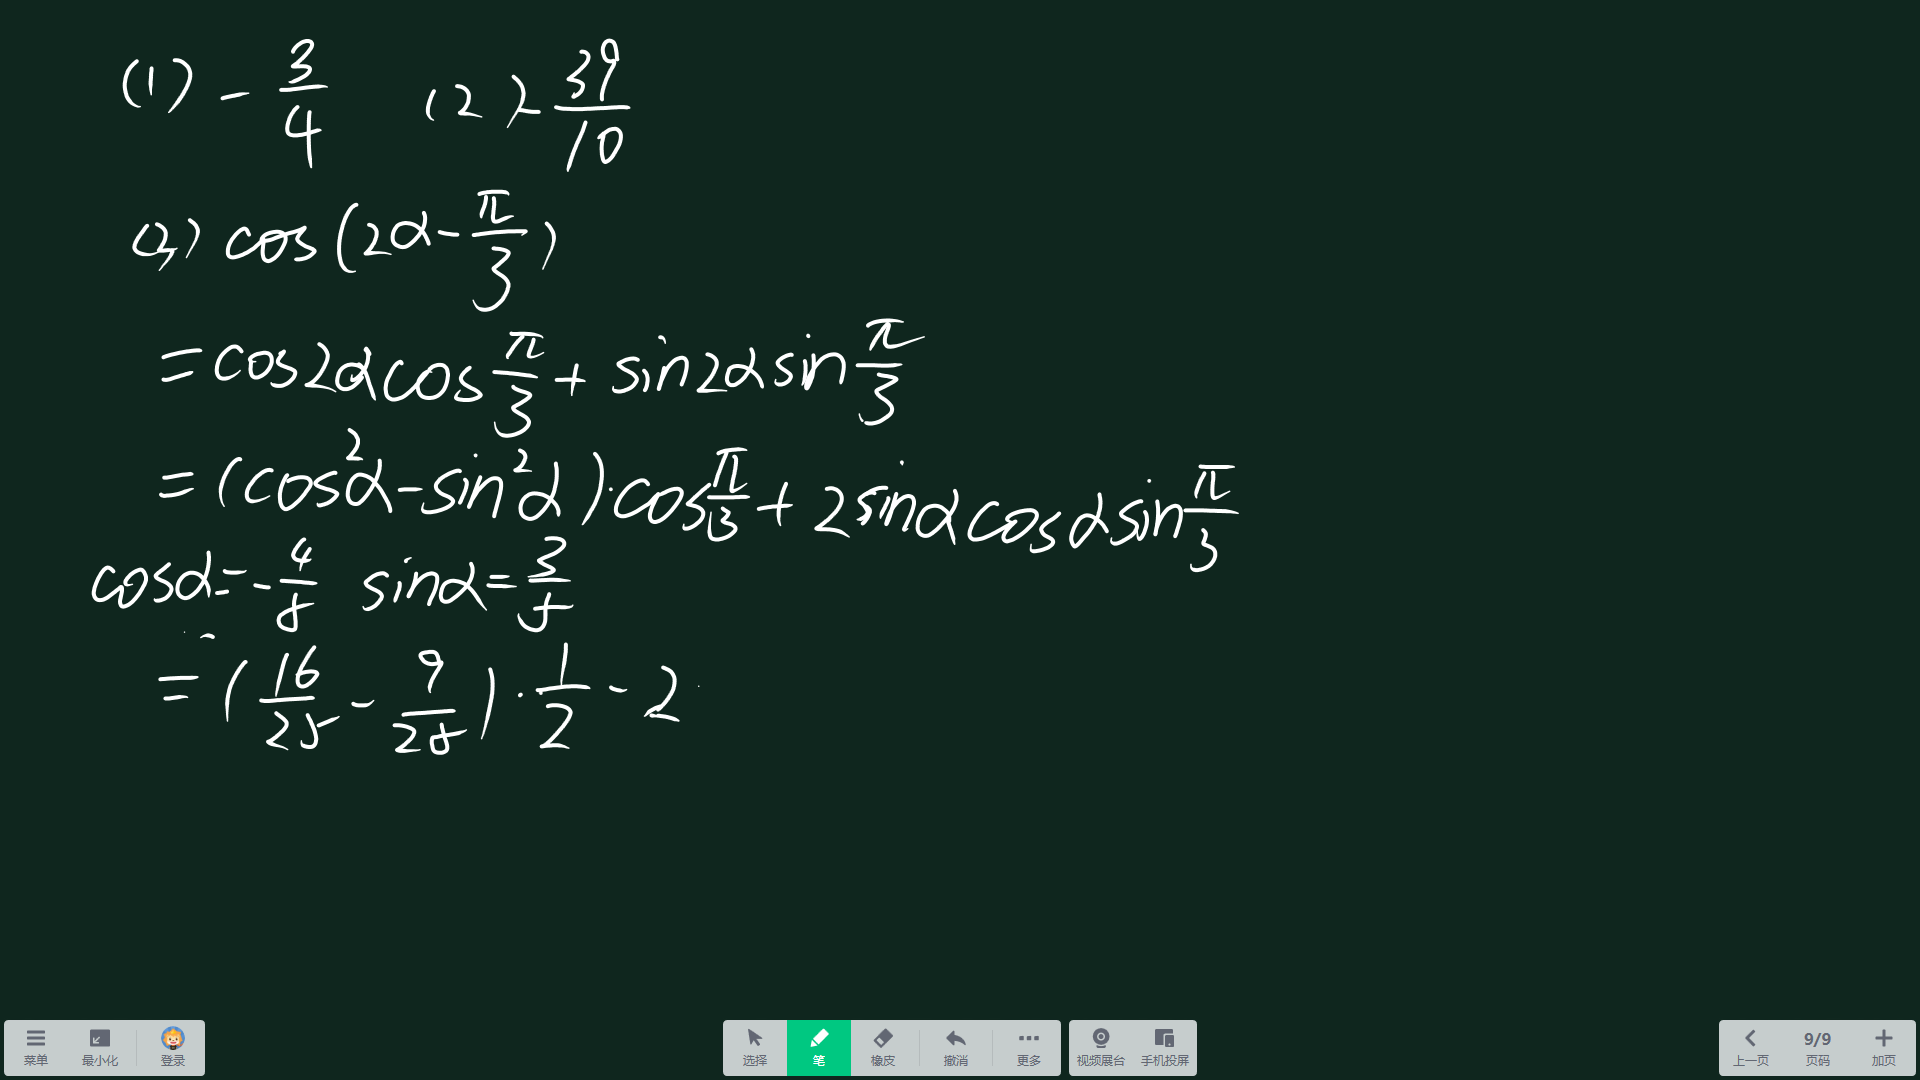 (1) -3/4 (2) -39/10
(3) cos(2α-π/3)
=cos2αcosπ/3+sin2αsinπ/3
=(cos²α-sin²α)·cosπ/3+2sinαcosαsinπ/3
cosα=-4/5 sinα=3/5
=(16/25-9/25)·1/2-2
菜单 最小化 登录 选择 笔 橡皮 撤消 更多 视频展台 手机投屏 上一页 9/9 页码 加页